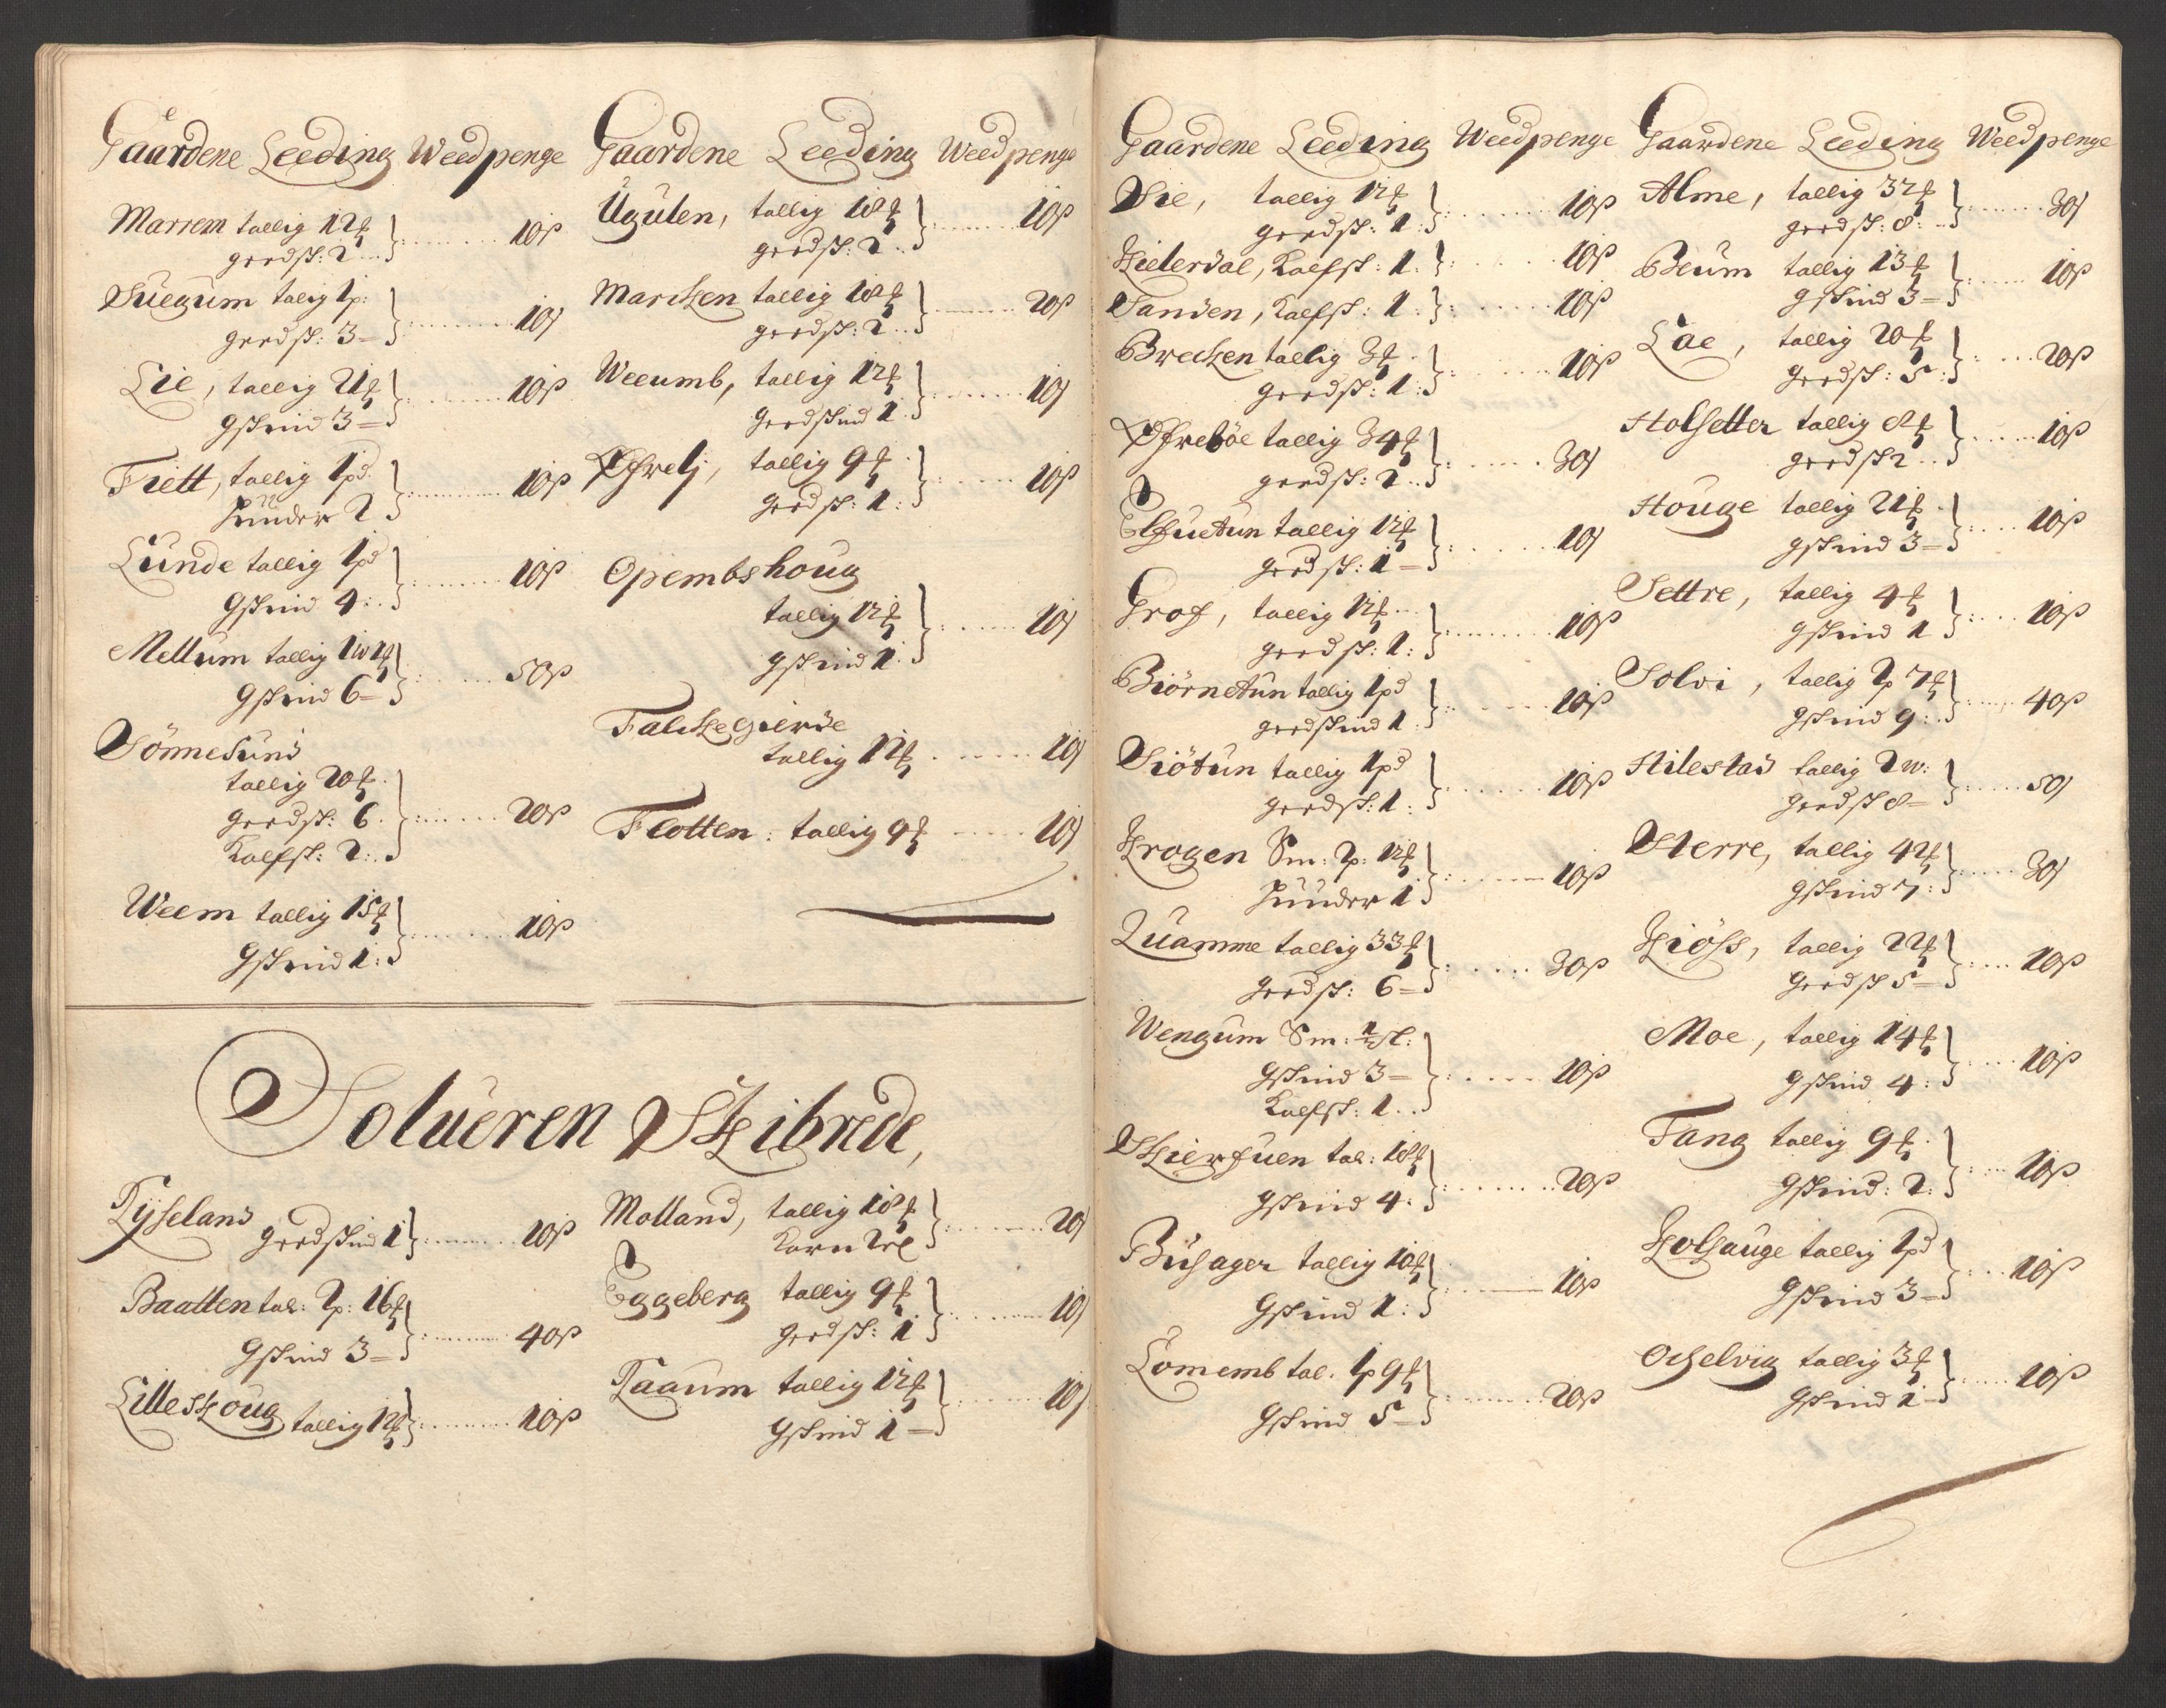 Gaardene Leeding Weedpenge
Marrem tallig 12 ₰
geedsk: 2 10 ß
Suegum talig 1 p:
geedsk: 3 10 ß
Lie, tallig 21 ₰
gskind 3 10 ß
Fiett, tallig 1 pd
Huuder 2 10 ß
Lunde tallig 1 pd
gskind 4 10 ß
Mellum tallig 1 w 1 ₰
gskind 6 50 ß
Sönnesund
tallig 20 ₰
geedsk: 6
Kalfsk: 2 20 ß
Weem tallig 15 ₰
gskind 1 10 ß
Gaardene Leeding Weedpenge
Ugulen, tallig 18 ₰
geedsk: 2 10 ß
Marchen tallig 18 ₰
geedsk: 2 20 ß
Weeumb, tallig 12 ₰
geedskind 1 10 ß
Øfreli, tallig 9 ₰
geedsk: 1 10 ß
Opembshoug
tallig 12 ₰
gskind 1 10 ß
Falchegierde
tallig 12 ₰ 10 ß
Flotten: tallig 9 ₰ 10 ß
Solueren Skibrede,
Tyseland
geedskind 1 10 ß
Baatten tal: 2 p: 16 ₰
gskind 3 40 ß
Lilleskoug tallig 12 ₰ 10 ß
Molland, tallig 18 ₰
Korn 20 ß
Eggeberg tallig 9 ₰
geedsk: 1 10 ß
Taaum tallig 12 ₰
gskind 1 10 ß
Gaardene Leeding Weedpenge
Sie, tallig 12 ₰
geedsk: 1 10 ß
Hielerdal, Kalfsk: 1 10 ß
Sanden, Kalfsk: 1 10 ß
Brechen tallig 3 ₰
geedsk: 1 10 ß
Øfreböe tallig 34 ₰
geedsk: 2 30 ß
Elfuetun tallig 12 ₰
geedsk: 1 10 ß
Grof, tallig 12 ₰
geedsk: 1 10 ß
Biörnetun tallig 1 pd
geedskind 1 10 ß
Siötun tallig 1 pd
geedsk: 1 10 ß
Krogen Sm: 2 p: 12 ₰
Huuder 1 10 ß
Quamme tallig 33 ₰
geedsk: 6 30 ß
Wengum Sm: ½ st:
gskind 3
Kalfsk: 1 10 ß
Skierfuen tal: 18 ₰
gskind 4 20 ß
Busager tallig 10 ₰
gskind 1 10 ß
Lomemb tal. 1 p 9 ₰
gskind 5 20 ß
Gaardene Leeding Weedpenge
Alme, tallig 32 ₰
geedsk: 8 30 ß
Beum tallig 13 ₰
gskind 3 10 ß
Lae, tallig 20 ₰
geedsk: 5 20 ß
Holsetter tallig 8 ₰
geedsk 2 10 ß
Houge tallig 21 ₰
gskind 3 10 ß
Settre, tallig 4 ₰
gskind 1 10 ß
Solvi, tallig 2 p 7 ₰
gskind 9 40 ß
Hilestad tallig 2 w:
geedsk 8 50 ß
Sterre, tallig 42 ₰
gskind 7 30 ß
Kiöss, tallig 22 ₰
geedsk 5 10 ß
Moe, tallig 14 ₰
gskind 4 10 ß
Tang tallig 9 ₰
gskind: 2 10 ß
Holsauge tallig 1 pd
gskind 3 10 ß
Oxelvig tallig 3 ₰
gskind 1 10 ß